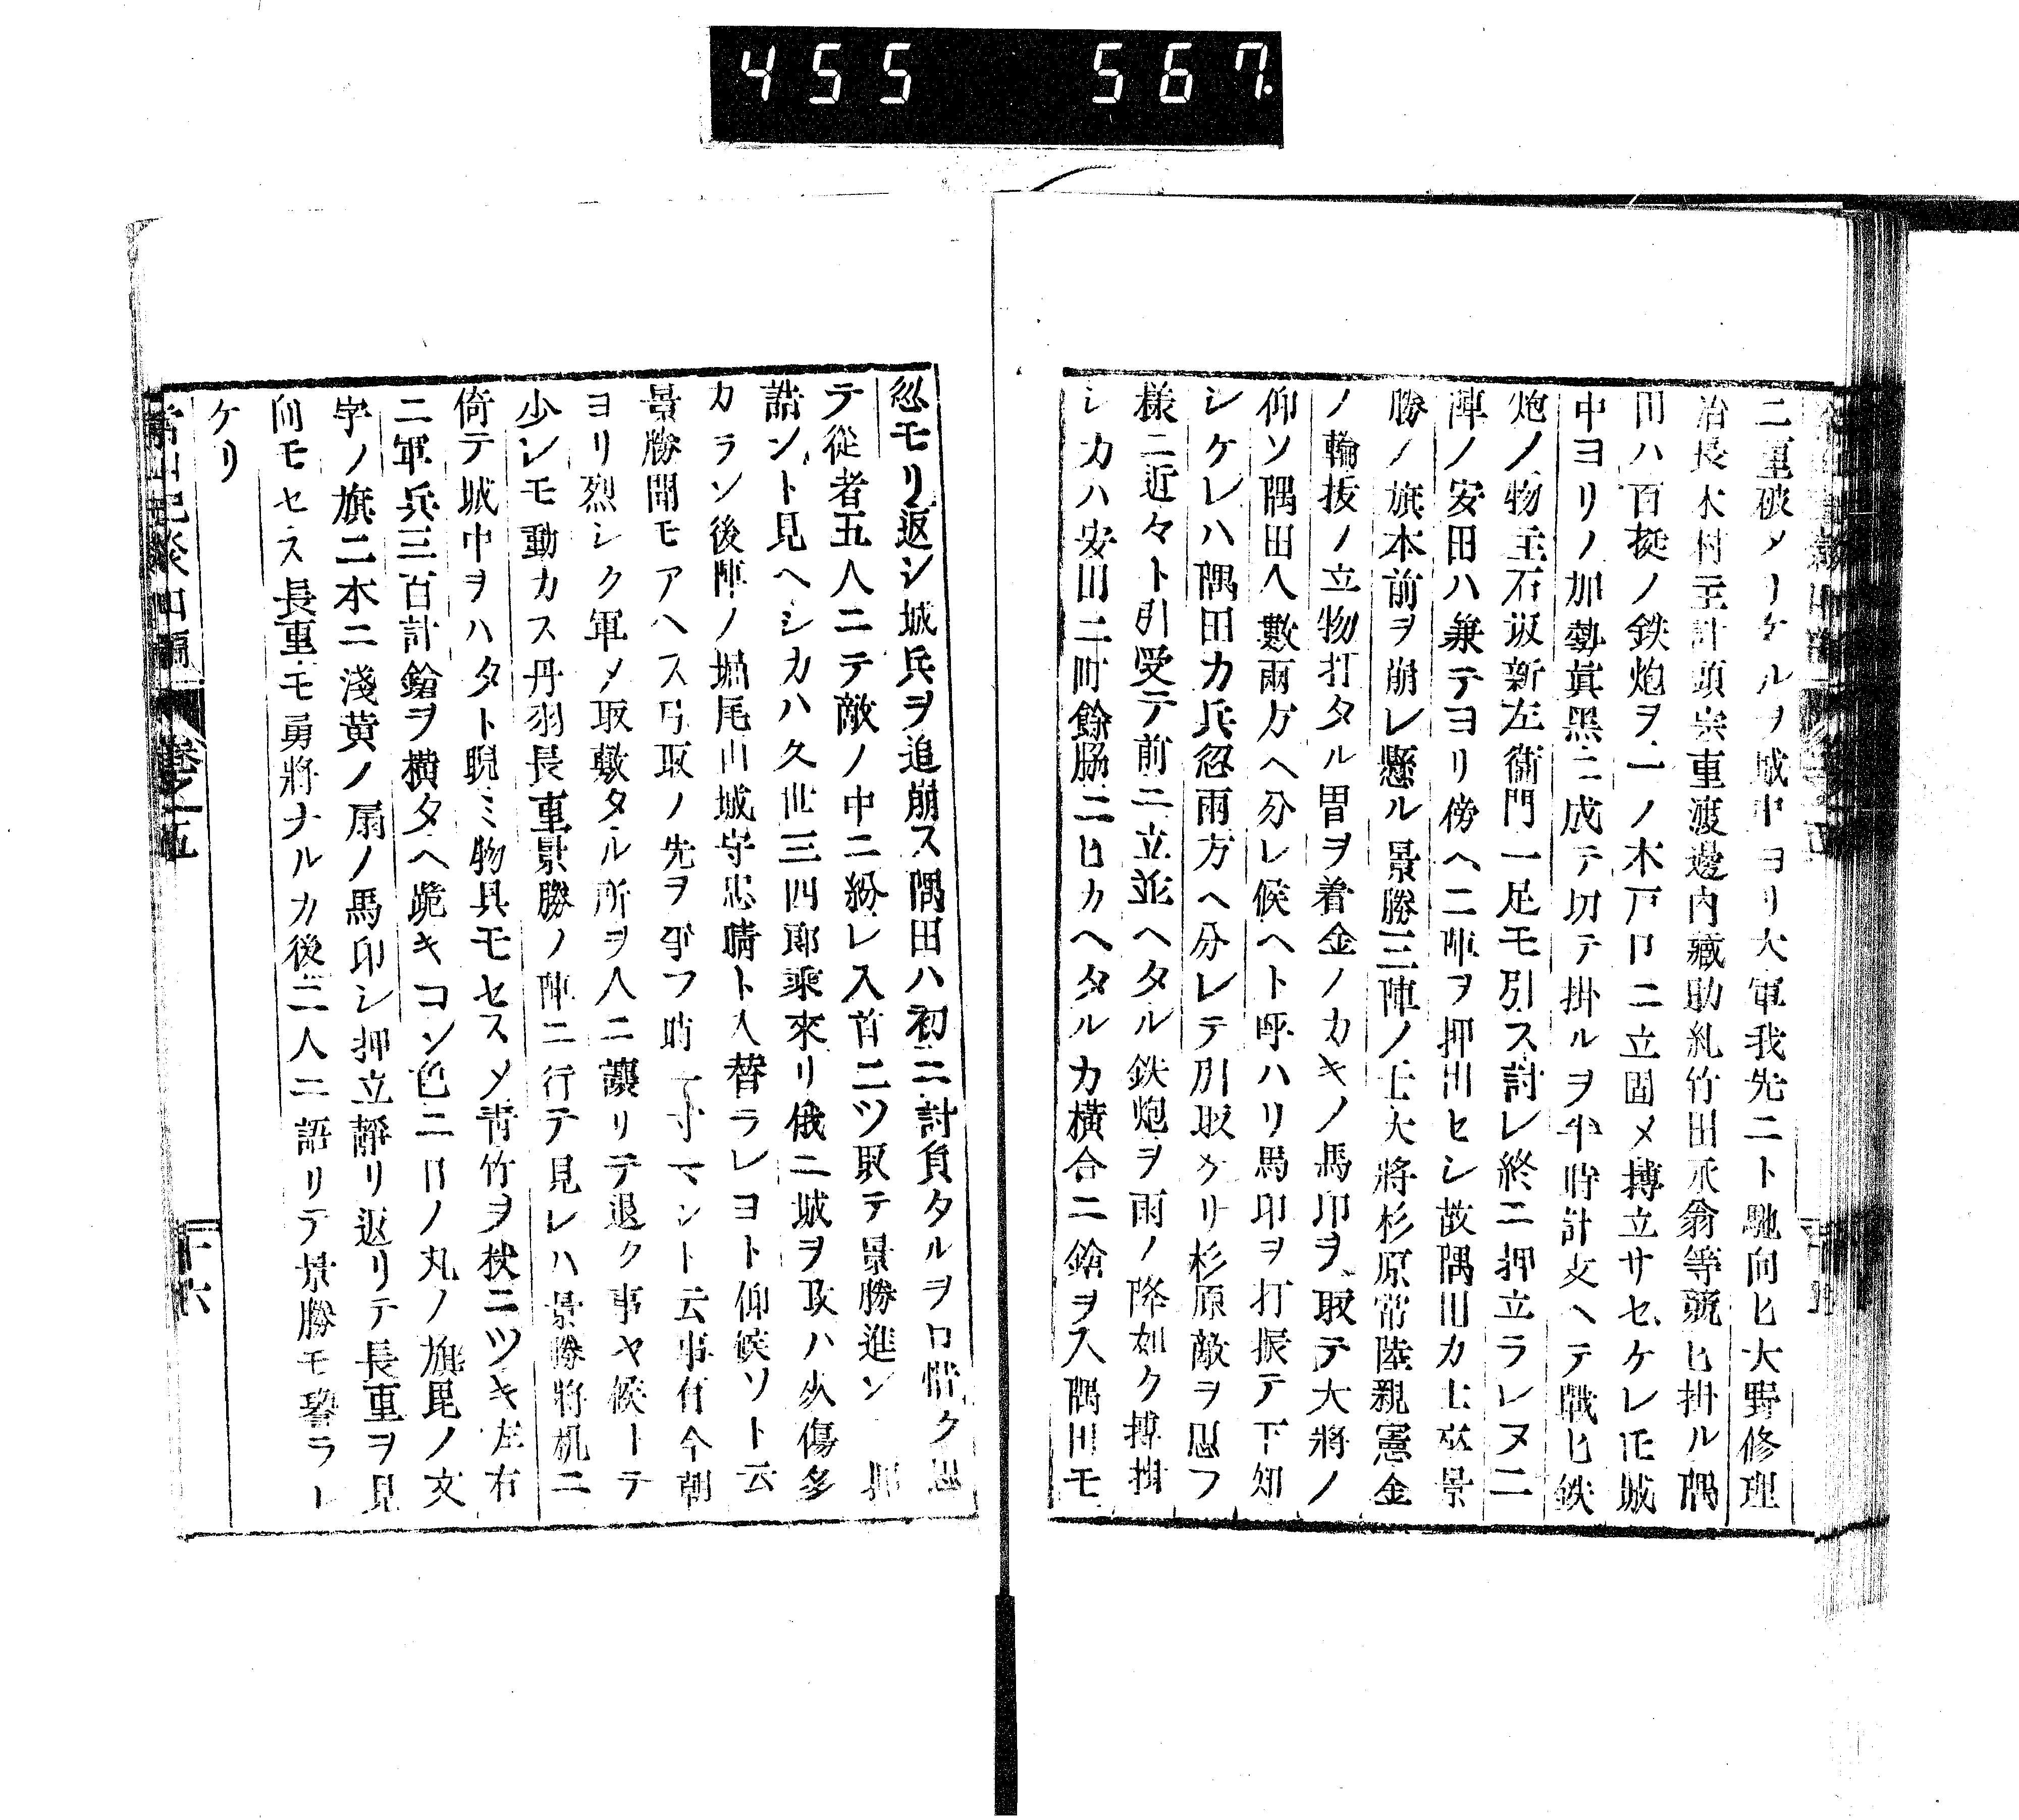 455 567
二重破メリケルヲ城中ヨリ大軍我先ニト馳向ヒ大野修理
治長木村主計頭宗重渡邊内藏助糺竹田永翁等競ヒ掛ル隅
田ハ百挺ノ鉄炮ヲ一ノ木戸口ニ立固メ搏立サセケレ𪜈城
中ヨリノ加勢眞黒ニ成テ切テ掛ルヲ半時計支ヘテ戰ヒ鉄
炮ノ物主石坂新左衞門一足モ引ス討レ終ニ押立ラレヌ二
陣ノ安田ハ兼テヨリ傍ヘ二陣ヲ押出セシ故隅田カ士卒景
勝ノ旗本前ヲ崩レ懸ル景勝三陣ノ士大將杉原常陸親憲金
ノ輪抜ノ立物打タル冑ヲ着金ノカキノ馬印ヲ取テ大將ノ
仰ソ隅田人數兩方ヘ分レ候ヘト呼ハリ馬印ヲ打振テ下知
シケレハ隅田カ兵忽兩方ヘ分レテ引取ケリ杉原敵ヲ思フ
様ニ近々ト引受テ前ニ立並ヘタル鉄炮ヲ雨ノ降如ク搏掛
シカハ安田二町餘脇ニヒカヘタルカ横合ニ鎗ヲ入隅田モ
忽モリ返シ城兵ヲ追崩ス隅田ハ初ニ討負タルヲ口惜ク思
テ從者五人ニテ敵ノ中ニ紛レ入首二ツ取テ景勝進ン
詰ント見ヘシカハ久世三四郎乘來リ俄ニ城ヲ攻ハ火傷多
カラン後陣ノ堀尾山城守忠晴ト入替ラレヨト仰候ソト云
景勝聞モアヘス弓取ノ先ヲ爭フ時一寸マント云事有今朝
ヨリ烈シク軍メ取敷タル所ヲ人ニ讓リテ退ク事ヤ候ートテ
少シモ動カス丹羽長重景勝ノ陣ニ行テ見レハ景勝將机ニ
倚テ城中ヲハタト睨ミ物具モセスメ青竹ヲ杖ニツキ左右
ニ軍兵三百計鎗ヲ横タヘ跪キコン色ニ日ノ丸ノ旗毘ノ文
字ノ旗二本ニ淺黄ノ扇ノ馬印シ押立靜リ返リテ長重ヲ見
向モセス長重モ勇將ナルカ後ニ人ニ語リテ景勝モ譽ラレ
ケリ
常山紀談四編 卷之十五 十六